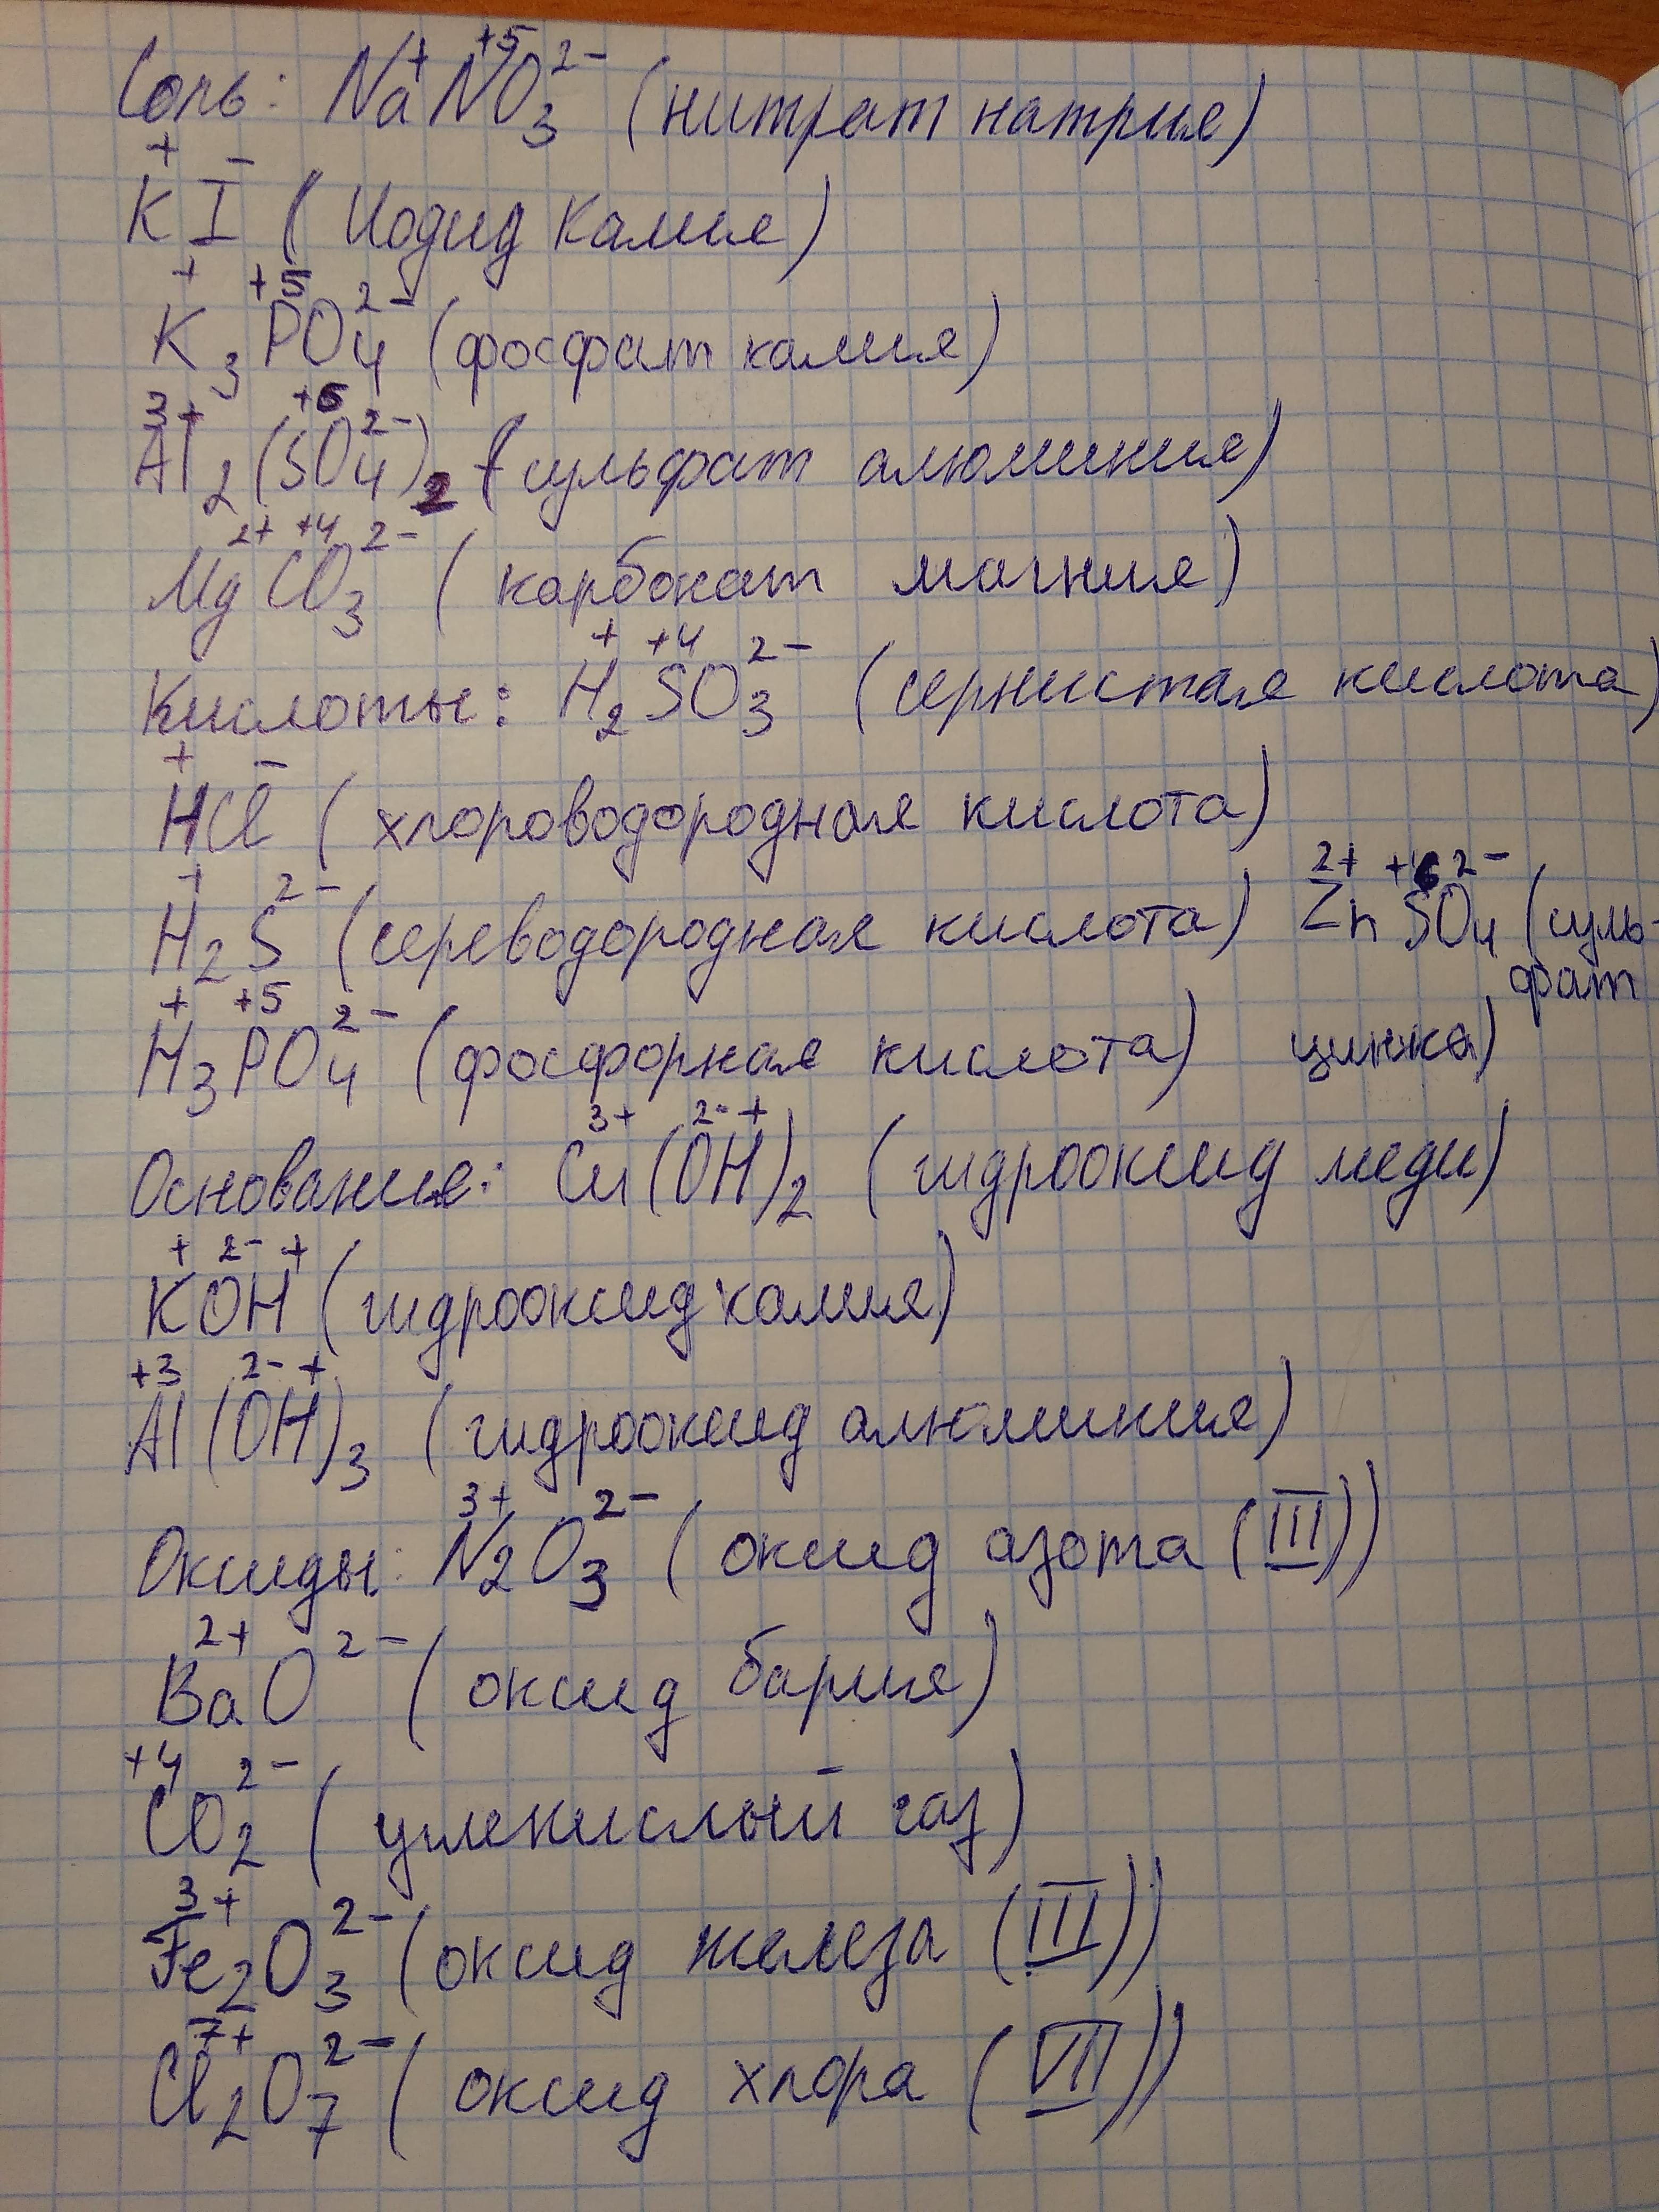 Соль: Na⁺N⁺⁵O₃²⁻ (нитрат натрия)
K⁺I⁻ (Иодид калия)
K⁺₃P⁺⁵O₄²⁻ (фосфат калия)
Al³⁺₂(S⁺⁶O₄²⁻)₂ (сульфат алюминия)
Mg²⁺C⁺⁴O₃²⁻ (карбонат магния)
Кислоты: H⁺₂S⁺⁴O₃²⁻ (сернистая кислота)
H⁺Cl⁻ (хлороводородная кислота)
H⁺₂S²⁻ (сереводородная кислота) Zn²⁺S⁺⁶O₄²⁻ (суль-
фат
H⁺₃P⁺⁵O₄²⁻ (фосфорная кислота) цинка)
Основание: Cu³⁺(O²⁻H⁺)₂ (гидрооксид меди)
K⁺O²⁻H⁺ (гидрооксид калия)
Al⁺³(O²⁻H⁺)₃ (гидрооксид алюминия)
Оксиды: N³⁺₂O₃²⁻ (оксид азота (III))
Ba²⁺O²⁻ (оксид бария)
C⁺⁴O₂²⁻ (углекислый газ)
Fe³⁺₂O₃²⁻ (оксид железа (III))
Cl⁷⁺₂O₇²⁻ (оксид хлора (VII))